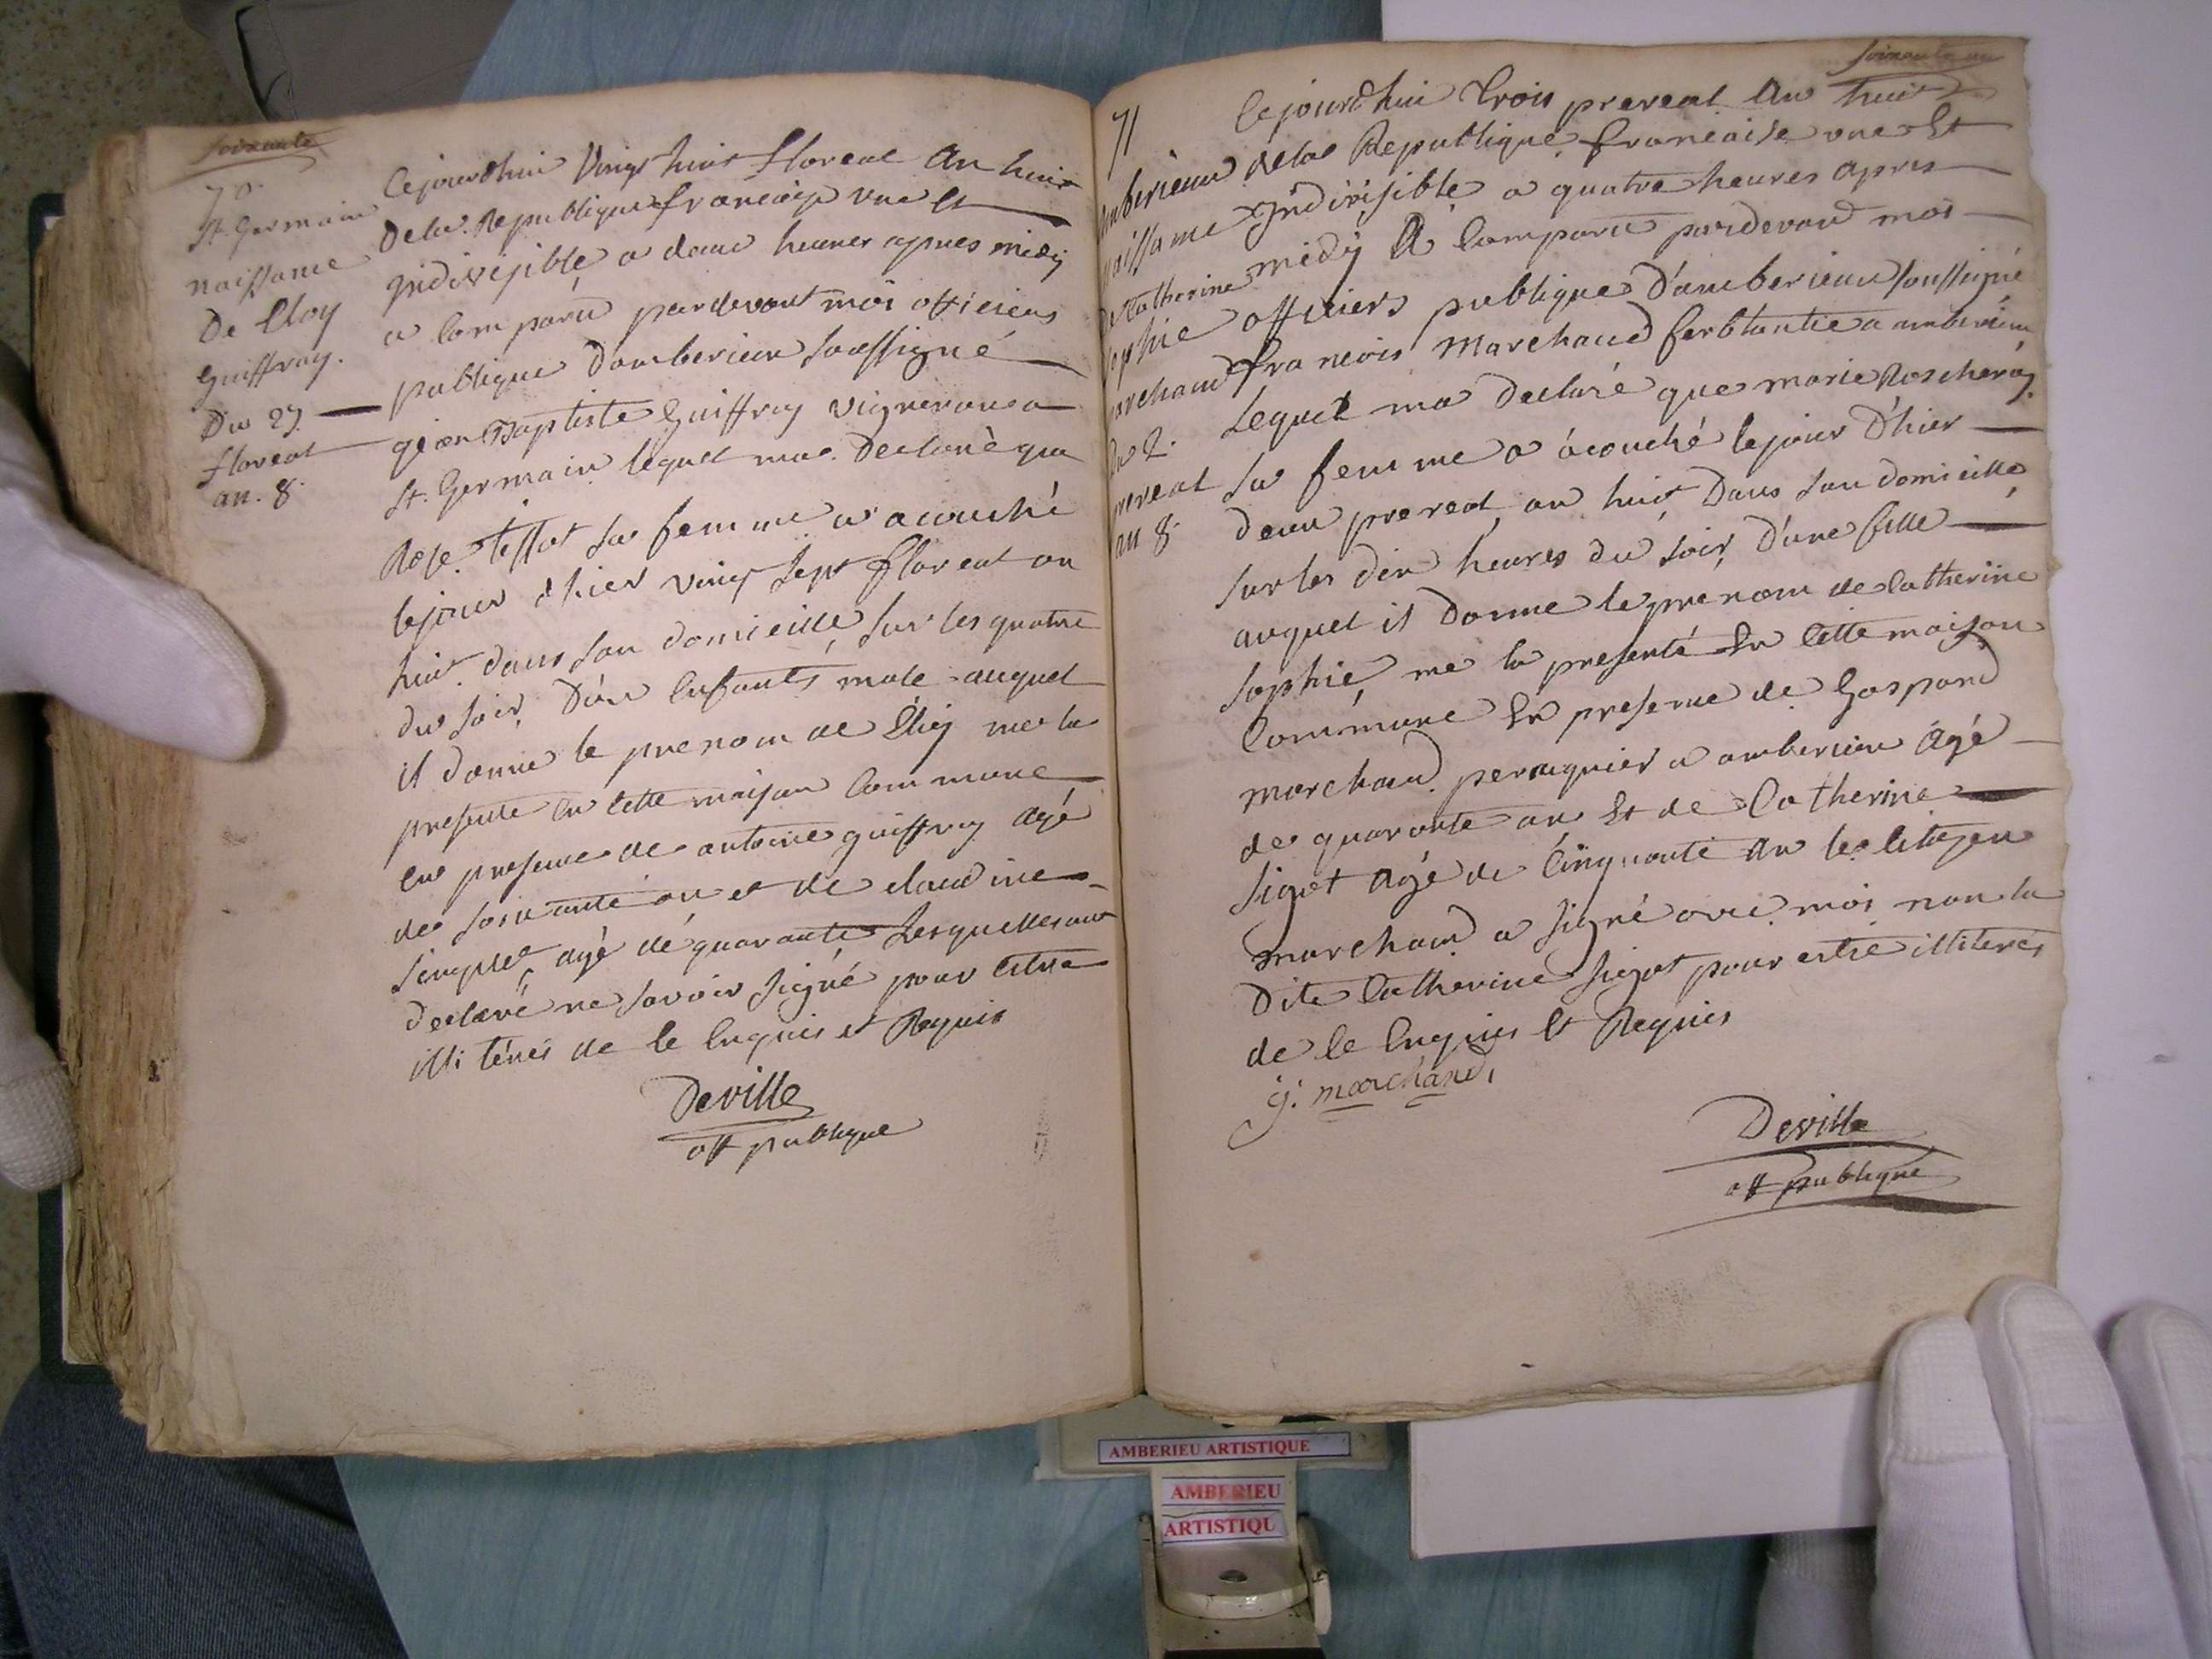 Soixante
70.
St. Germain
naissance
De Eloy
Guiffray.
Du 27
floreal
an. 8.
Cejourdhui Vingt huit floreal An huit
De la Republique francaise une Et
Indivisible a deux heures apres midy
a Comparu pardevant moi officiers
publique Damberieux Soussigné
jean Baptiste Guiffray vigneron a
St. Germain lequel ma Declaré que
Rose tissot sa femme a acouché
lejour d'hier vingt sept floreal an
huit dans son domicille sur les quatre
du soir D'un Enfants male auquel
il donne le prenom de Eloy me la
presente en cette maison Commune
en presence de antoine guiffray agé
de soixante an et de claudine
agé de quarante Lesquelles ont
declaré ne savoir signé pour estre
illiterés de ce Enquis et Requis
Deville
off publique
Soixante un
71
amberieux
naissance
de Catherine
sophie
marchand
du 2.
prereal
an 8
Cejourdhui trois prereal An huit
de la Republique francaise une Et
Indivisible a quatre heures apres
midy A Comparu pardevant moi
officiers publique D'amberieux soussigné
francois Marchand ferblantie a amberieux
Lequel ma Declaré que marie
sa femme a acouché lejour D'hier
deux prereal an huit Dans son domicille
sur les dix heures du soir D'une fille
auquel il donne le prenom de Catherine
Sophie me la presenté En Cette maison
Commune En presence de Gaspard
marchand peruquier a amberieux Agé
de quarante an Et de Catherine
Sigot Agé de Cinquante An le Citoyen
marchand a signé avec moi non la
Dite Catherine Sigot pour estre illiterés
de Ce Enquis Et Requis
g. marchand
Deville
off publique
AMBERIEU ARTISTIQUE
AMBERIEU
ARTISTIQU